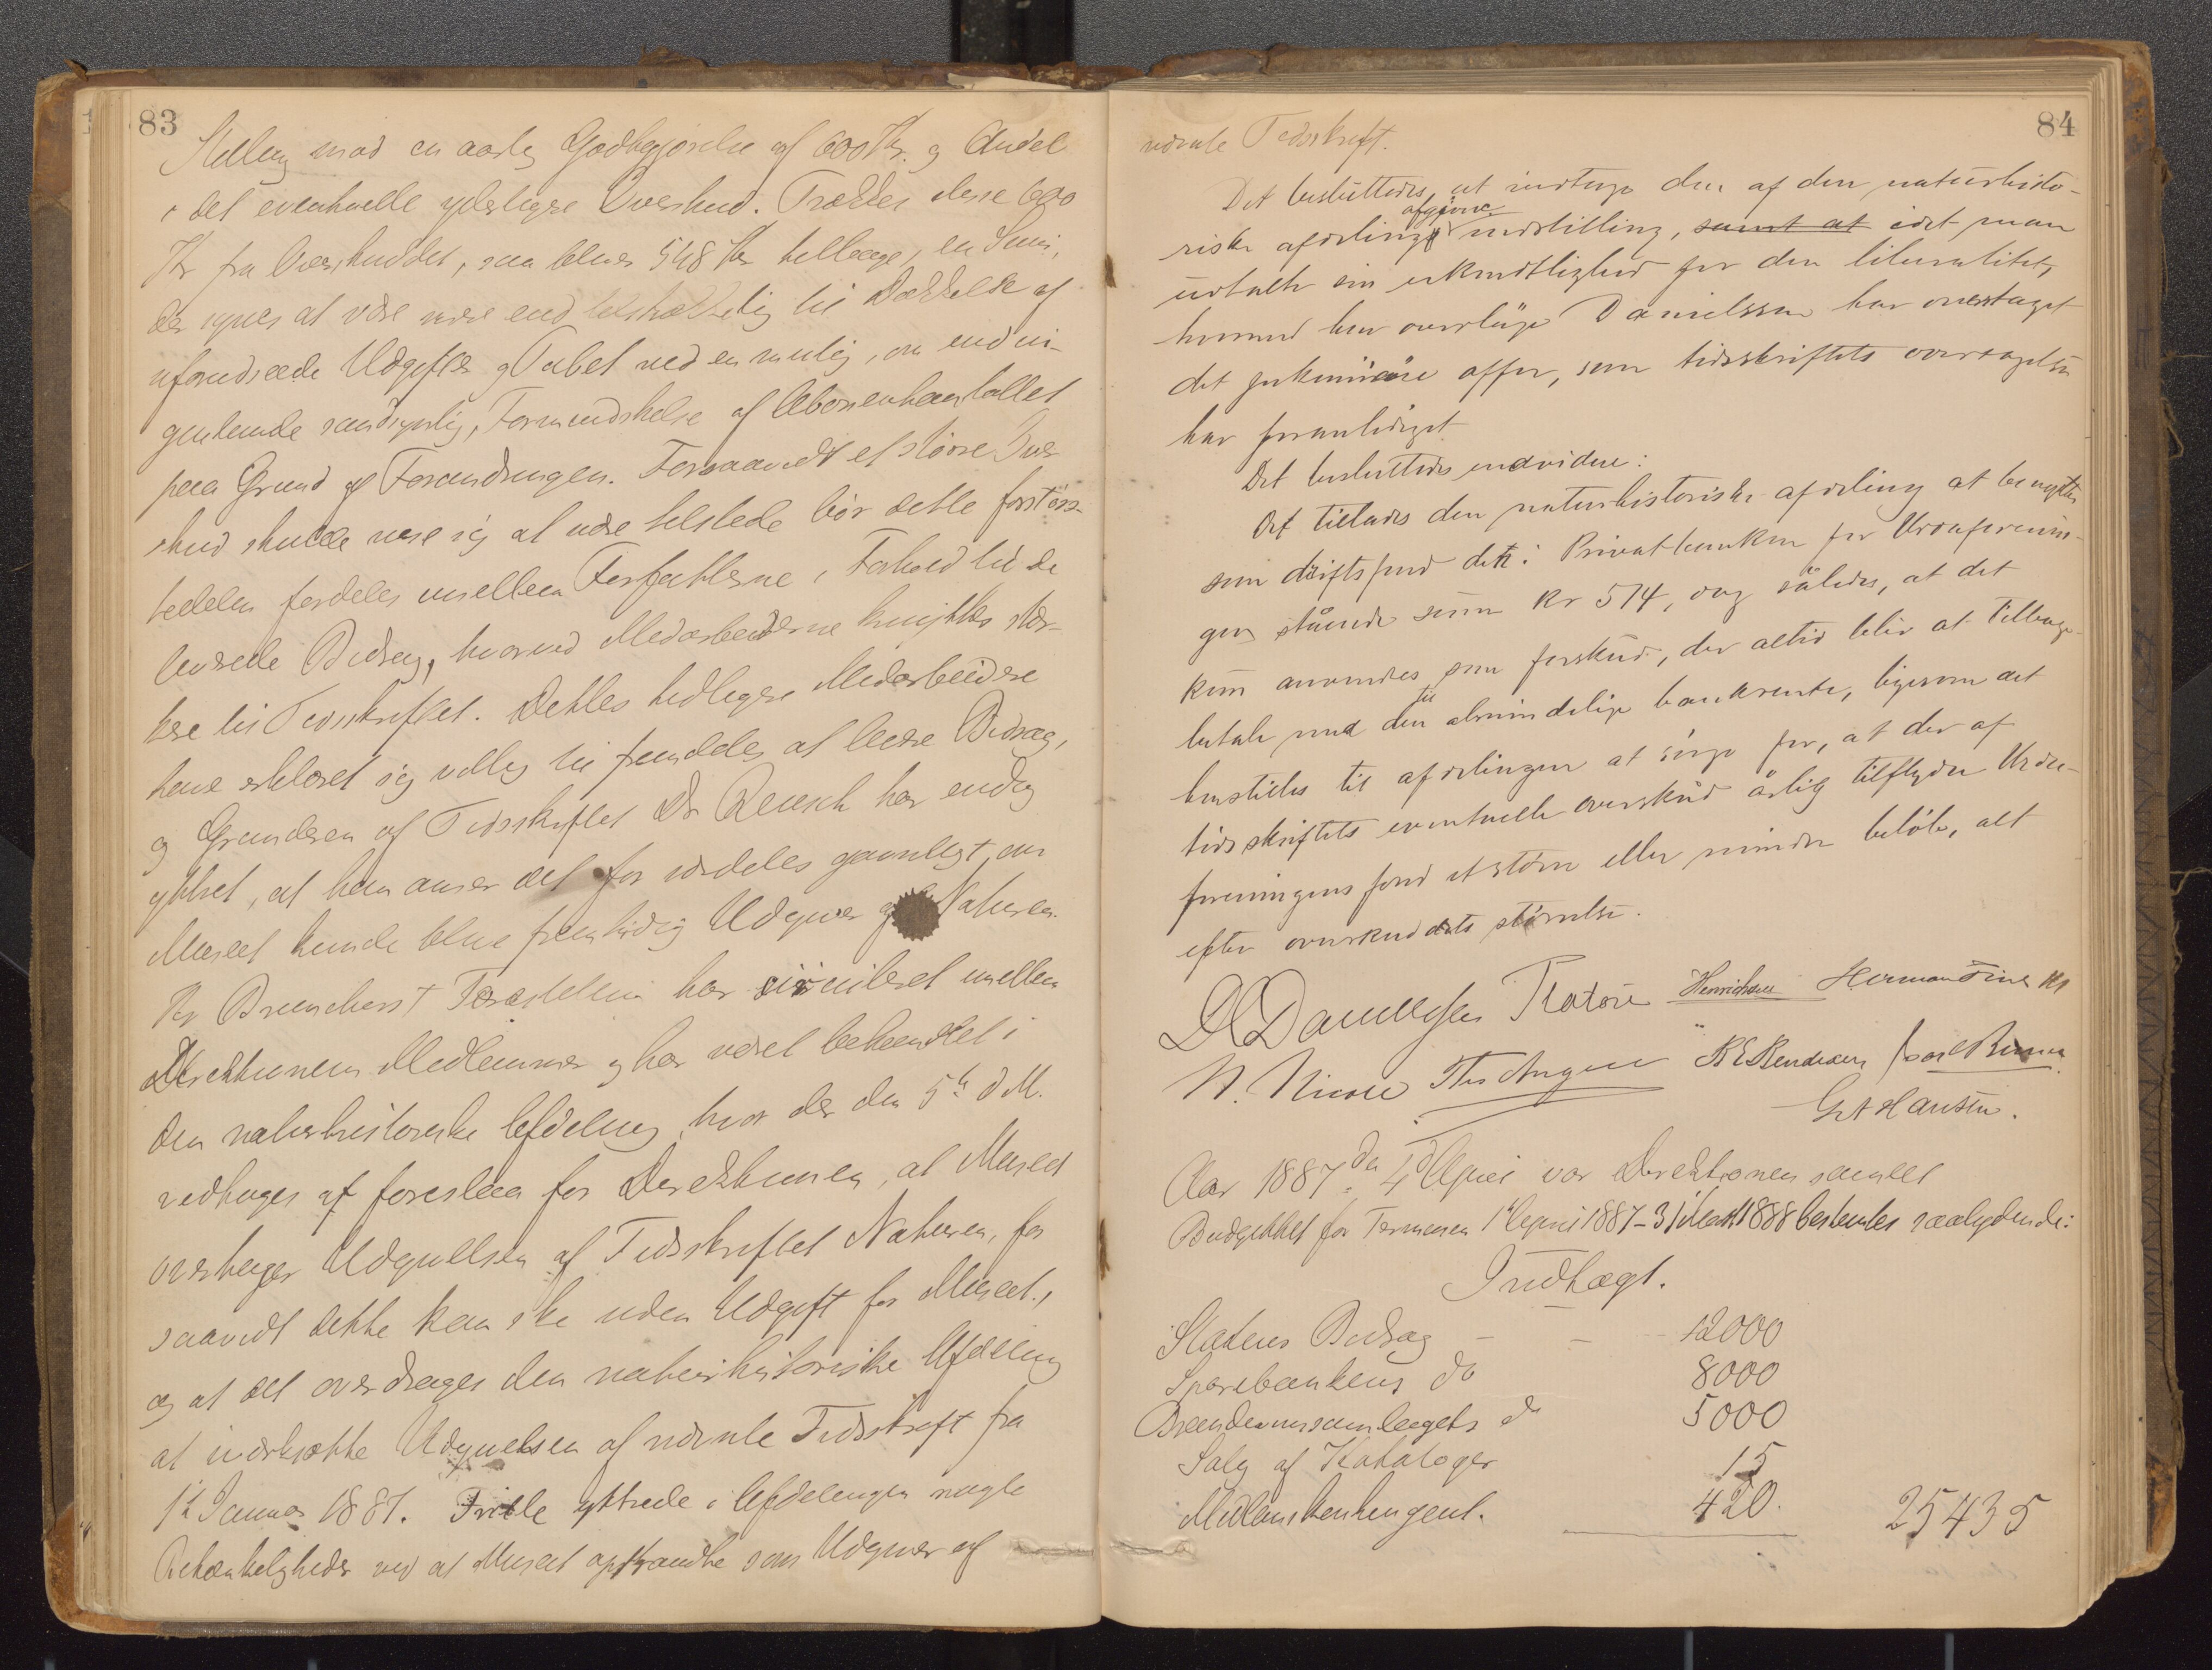 83
Stilling mod en aarlig Godtgjørelse af 600 Kr. og Andel
i det eventuelle yderligere Overskud. Trækkes disse 600
Kr fra Overskuddet, saa bliver 548 Kr tilbage, en Sum,
der synes at være mere end tilstrækkelig til Dækkelse af
uforudseede Udgifter og Tabet ved en mulig, om end in-
genlunde sandsynlig, Formindskelse af Abonnentantallet
paa Grund af Forandringen. Forsaavidt et større Over-
skud skulde vise sig at være tilstede bør dette forstørs-
tedelen fordeles mellem Forfatterne i Forhold til de
leverede Bidrag, hvorved Medarbeiderne knyttes stær-
kere til Tidsskriftet. Dettes tidligere Medarbeidere
have erklæret sig villig til fremdeles at levere Bidrag,
og Grunderen af Tidsskriftet Dr Reusch har endog
yttret, at han anser det for særdeles gavnligt, om
Museet kunde blive fremtidig Udgiver af Naturen.
Hr Brunchorst Forestilling har cirkuleret mellem
Direktionens Medlemmer og har været behandlet i
den naturhistoriske Afdeling, hvor der den 5te d M.
vedtoges at foreslaa for Direktionen, at Museet
overtager Udgivelsen af Tidsskriftet Naturen, for
saavidt dette kan ske uden Udgift for Museet,
og at det overdrages den naturhistoriske Afdeling
at iværksætte Udgivelsen af nævnte Tidsskrift fra
1te Januar 1887. Friele yttrede i Afdelingen nogle
Betænkeligheder ved at Museet optraadte som Udgiver af
84
nævnte Tidsskrift.
Det besluttedes, at indtage den af den naturhisto-
riske afdeling afgivne indstilling, samt at idet man
udtalte sin erkjendtlighed for den liberalitet,
hvormed herr overlæge Danielssen har overtaget
det pekuniære offer, som tidsskriftets overtagelse
har foranlediget
Det besluttedes endvidere:
Det tillades den naturhistoriske afdeling at benytte
som driftsfond det i Privatbanken for Urdaforenin-
gen stående sum kr 574, dog således, at det
kun anvendes som forskud, der altid bliv at tilbage-
betale med den til almindelige bankrente, ligesom det
henstilles til afdelingen at sørge for, at der af
tidsskriftets eventuelle overskud årlig tilflyder Urda-
foreningens fond et større eller mindre beløb, alt
efter overskuddets størrelse.
DC Danielssen Platou Henrichsen Herman Friele
W. Nicolle BE Bendixen
G A Hansen.
Aar 1887 den 4d April var Direktionen samlet
Budgettet for Terminen 1te April 1887 – 31te Marts 1888 bestemtes saalydende:
Indtægt.
Statens Bidrag – – 12000
Sparebankens do 8000
Brændevinssamlagets do 5000
Salg af Kataloger 15
Medlemskontingent. 420. 25435